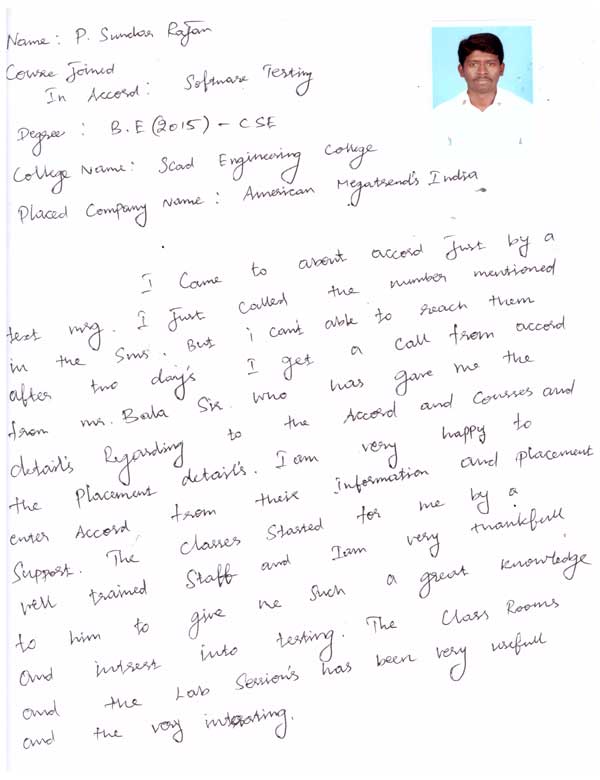 Name: P. Sundar Rajan
Course Joined
In Accord: Software Testing
Degree: B.E (2015) - CSE
College Name: Scad Engineering College
Placed Company Name: American Megatrend's India
I Came to about accord Just by a
text msg. I Just called the number mentioned
in the Sms. But i can't able to reach them
after two day's I get a call from accord
from mr. Bala Sir. who has gave me the
detail's Regarding to the Accord and Courses and
the Placement detail's. I am very happy to
enter Accord from their Information and placement
Support. The classes Started for me by a
well trained Staff and I am very thankfull
to him to give me Such a great knowledge
and intrest into testing. The Class Rooms
and the Lab Session's has been very usefull
and the very intresting.